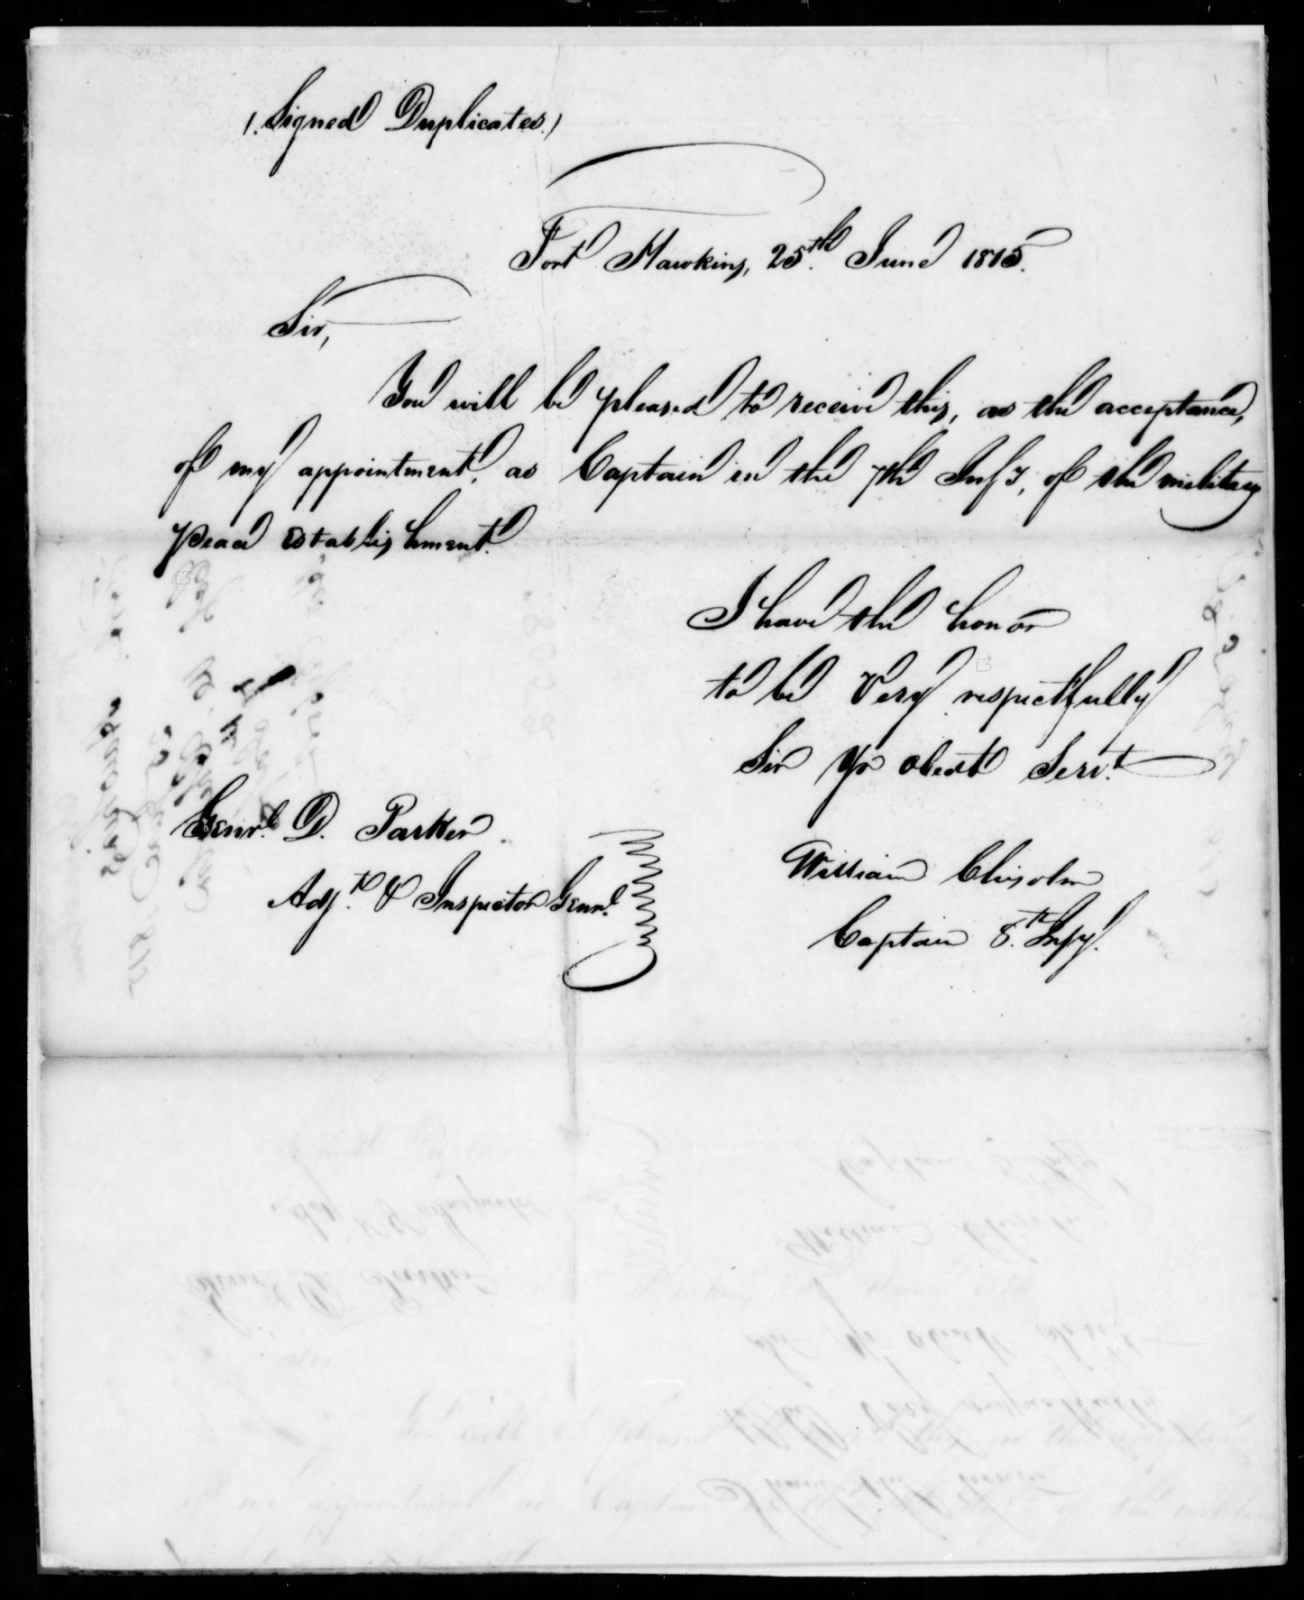 (Signed Duplicates.)
Fort Hawkins, 25th June 1815.
Sir,
You will be pleased to receive this, as the acceptance,
of my appointment, as Captain in the 7th Infy, of the military
peace establishment.
I have the honor
to be Very respectfully
Sir Yr obedt Servt.
Genrl. D. Parker
Adjt. & Inspector Genrl.
William Chisolm
Captain 8th Infy.